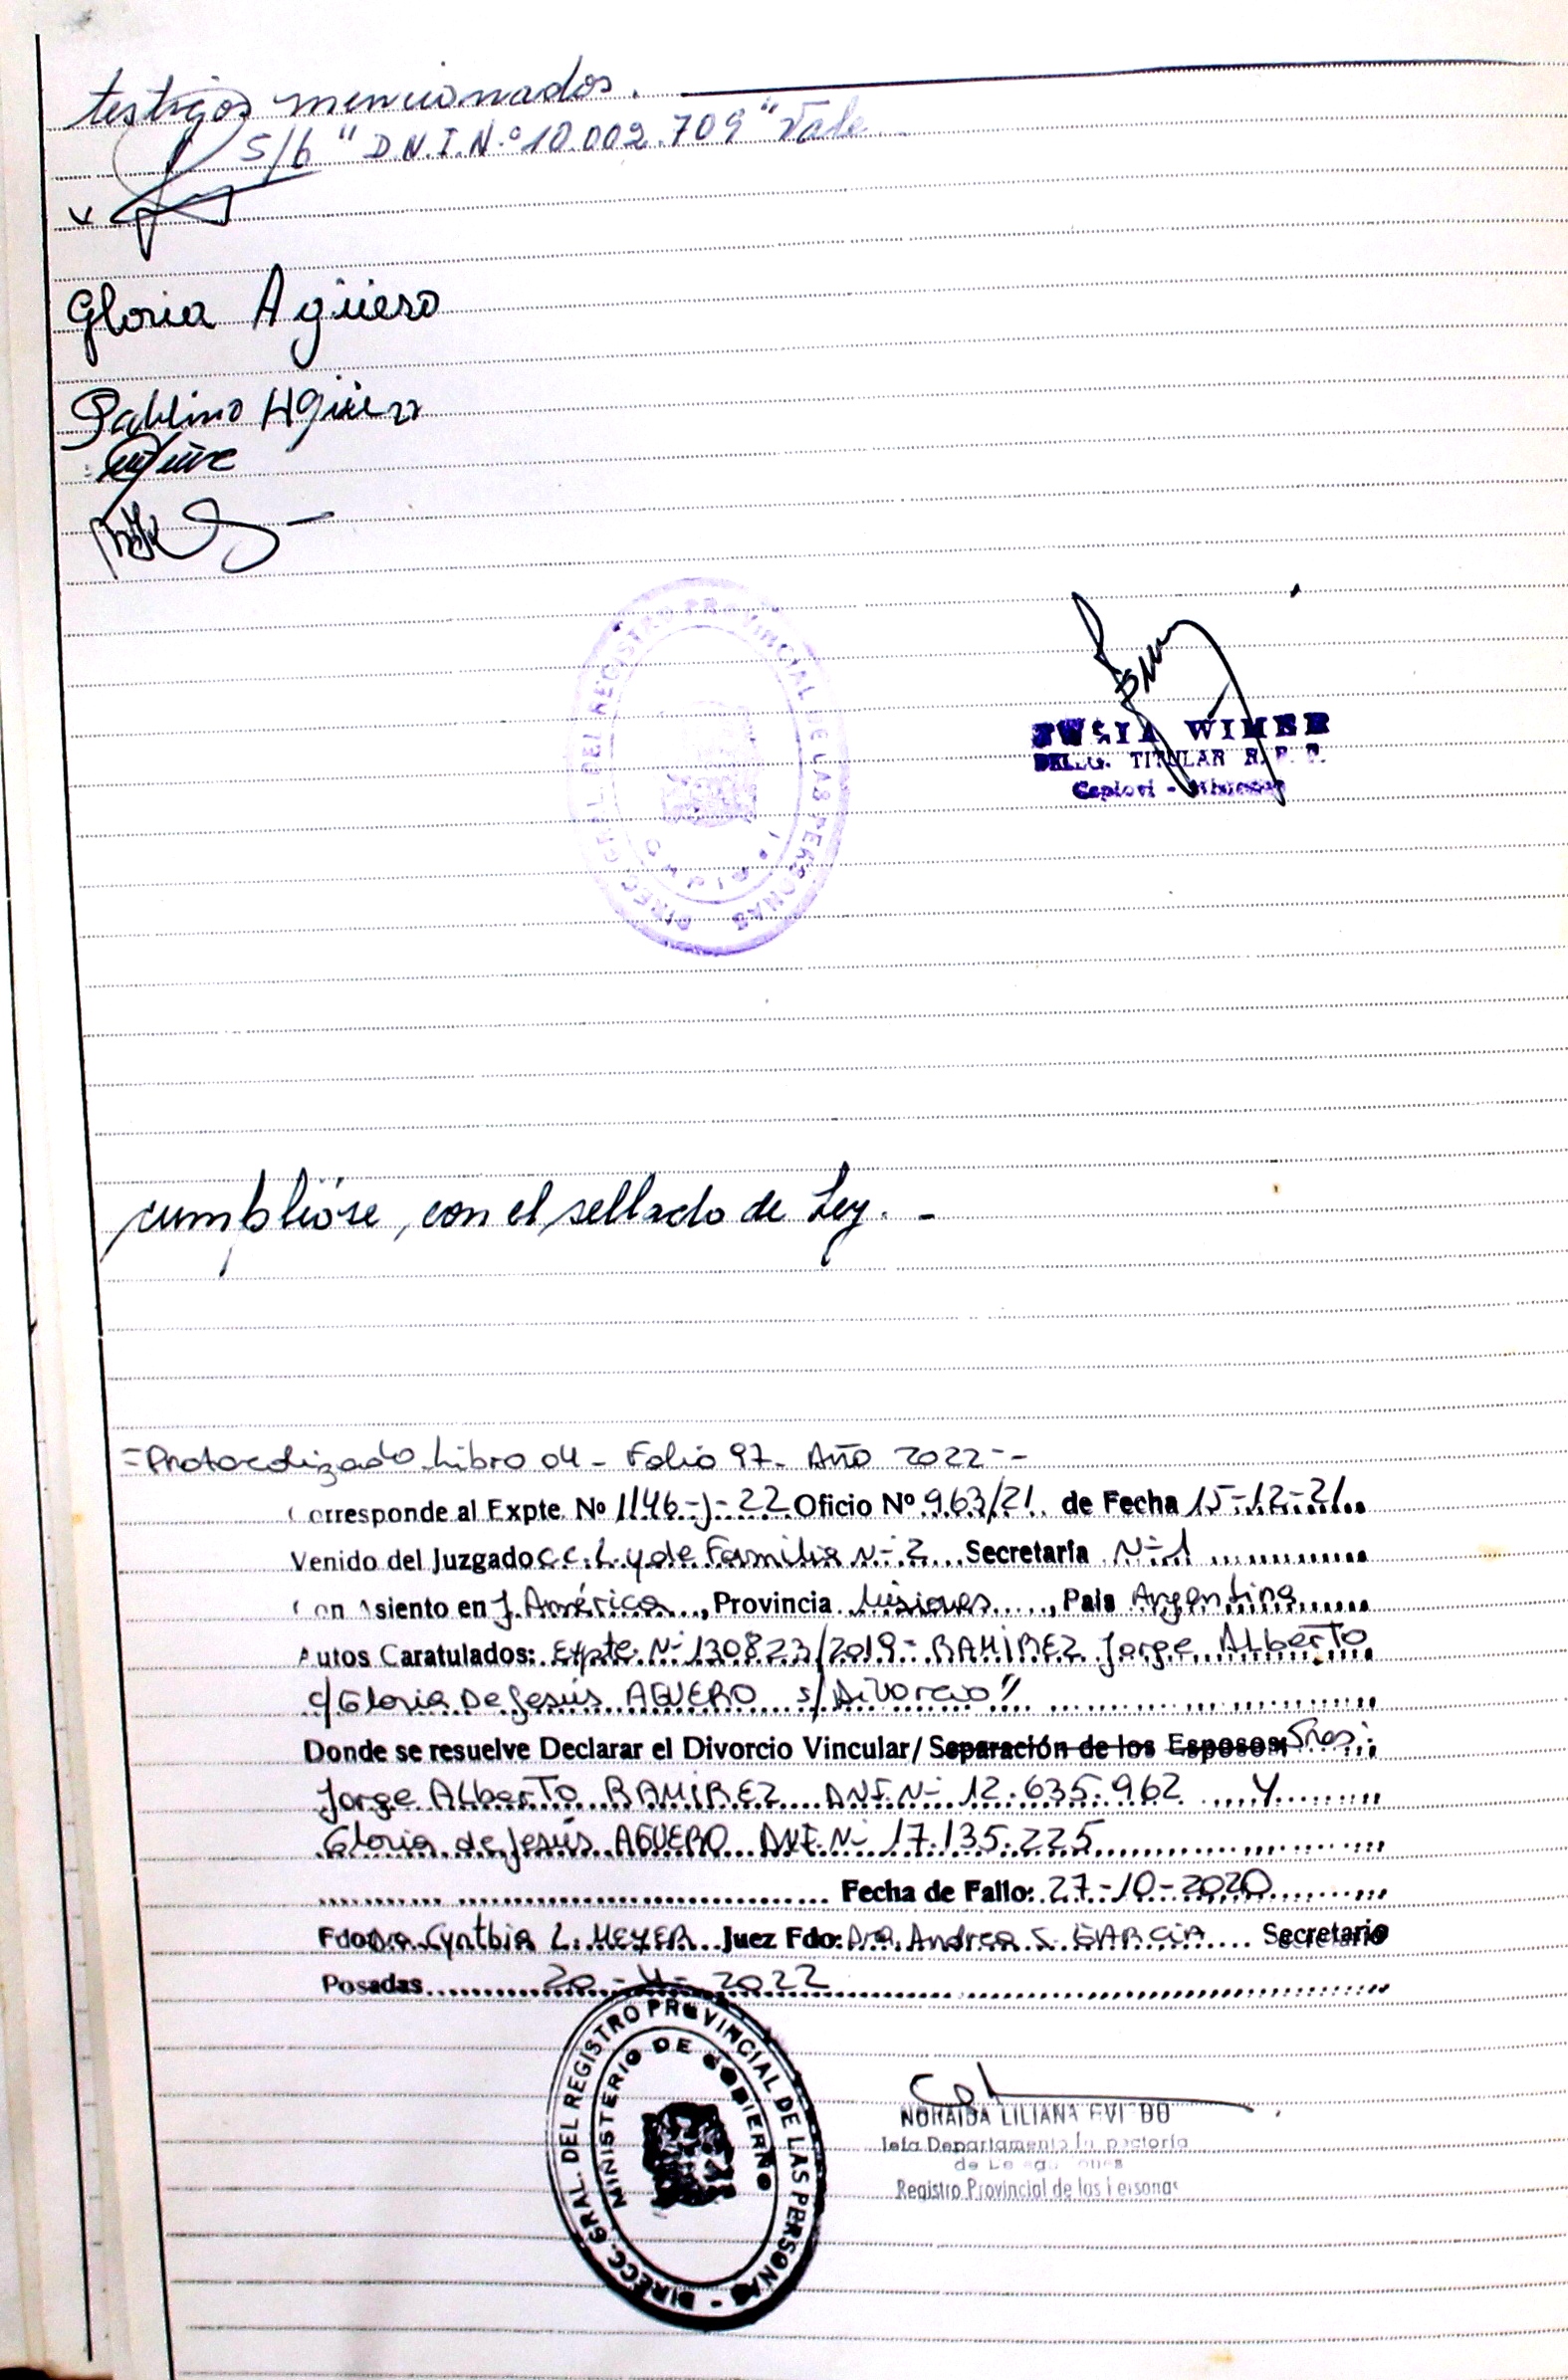 testigos mencionados.
S/b "D.N.I.N.º10.002.709" Vale
Gloria Agüero
Paulino Agüero
DIRECC. GRAL. DEL REGISTRO PROVINCIAL DE LAS PERSONAS
WIMER
DELEG. TITULAR R. P. P.
Capiovi - Misiones
cumplióse, con el sellado de Ley. -
=Protocolizado Libro 04 - Folio 97 - Año 2022=-
Corresponde al Expte. Nº 1146-J-22 Oficio Nº 963/21 de Fecha 15-12-21
Venido del Juzgado C.C.L. y de Familia N-2 Secretaría N-1
Con Asiento en J. América, Provincia Misiones, País Argentina
Autos Caratulados: Expte. N- 130823/2019 - RAMIREZ Jorge Alberto
c/ Gloria De Jesús AGUERO s/ Divorcio"
Donde se resuelve Declarar el Divorcio Vincular/ Separación de los Esposos: Sres:
Jorge Alberto RAMIREZ DNI. N- 12.635.962 y
Gloria de Jesús AGUERO DNI. N- 17.135.225
Fecha de Fallo: 27-10-2020
Fdo: Dra. Cynthia L. MEYER Juez Fdo: Dra. Andrea S. GARCIA Secretario
Posadas 20-4-2022
DIRECC. GRAL. DEL REGISTRO PROVINCIAL DE LAS PERSONAS -
MINISTERIO DE GOBIERNO
NORAIDA LILIANA
Jefa Departamento Inspectoría
de Delegaciones
Registro Provincial de las Personas